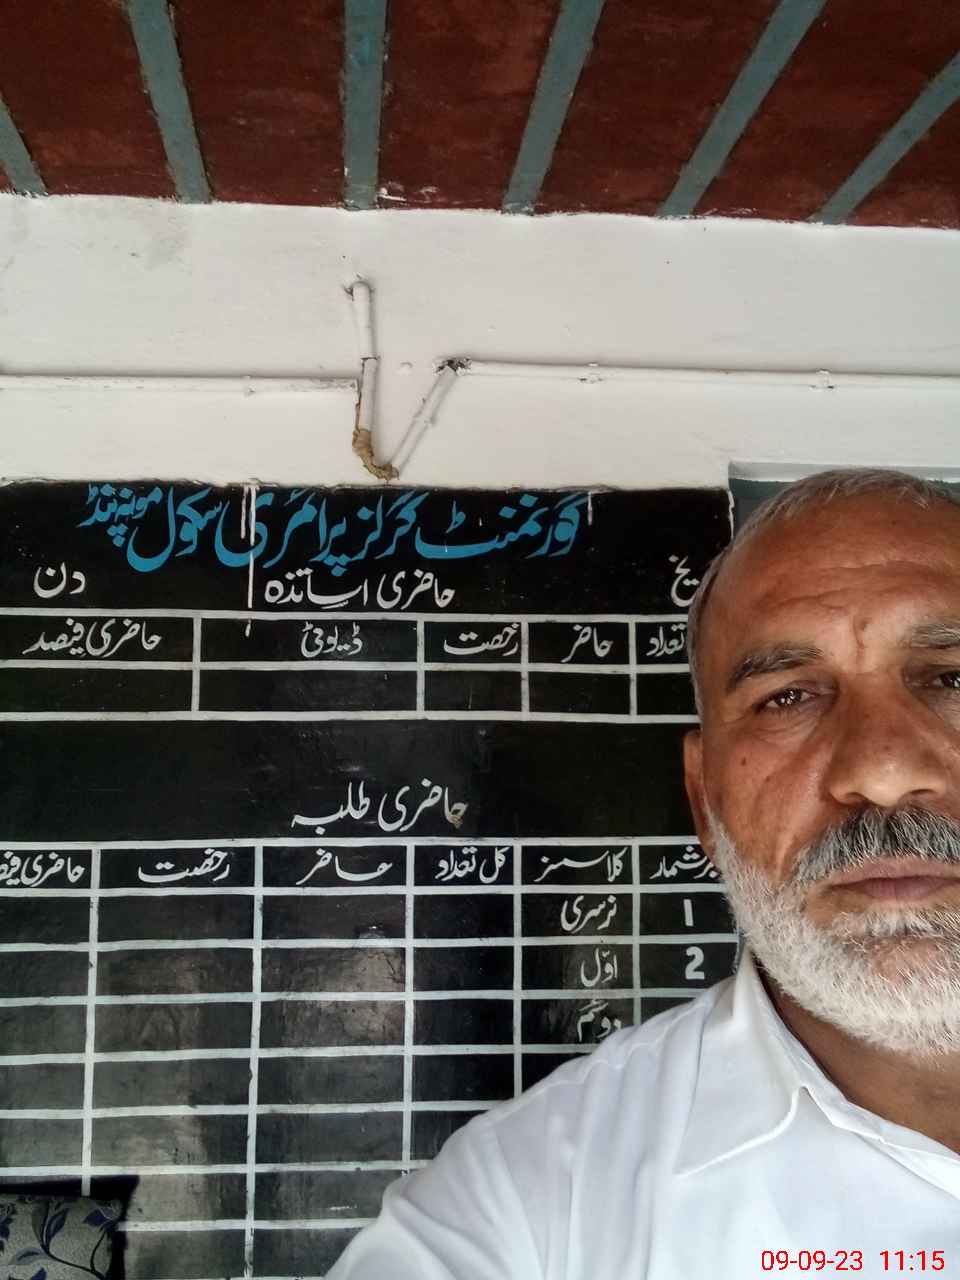 گورنمنٹ گرلز پرائمری سکول موہنہ پنڈ
یخ حاضری اساتذہ دن
تعداد حاضر رخصت ڈیوٹی حاضری فیصد
حاضری طلبہ
برشمار کلاسز کل تعداد حاضر رخصت حاضری فیصد
1 نرسری
2 اوّل
دوئم
09-09-23 11:15